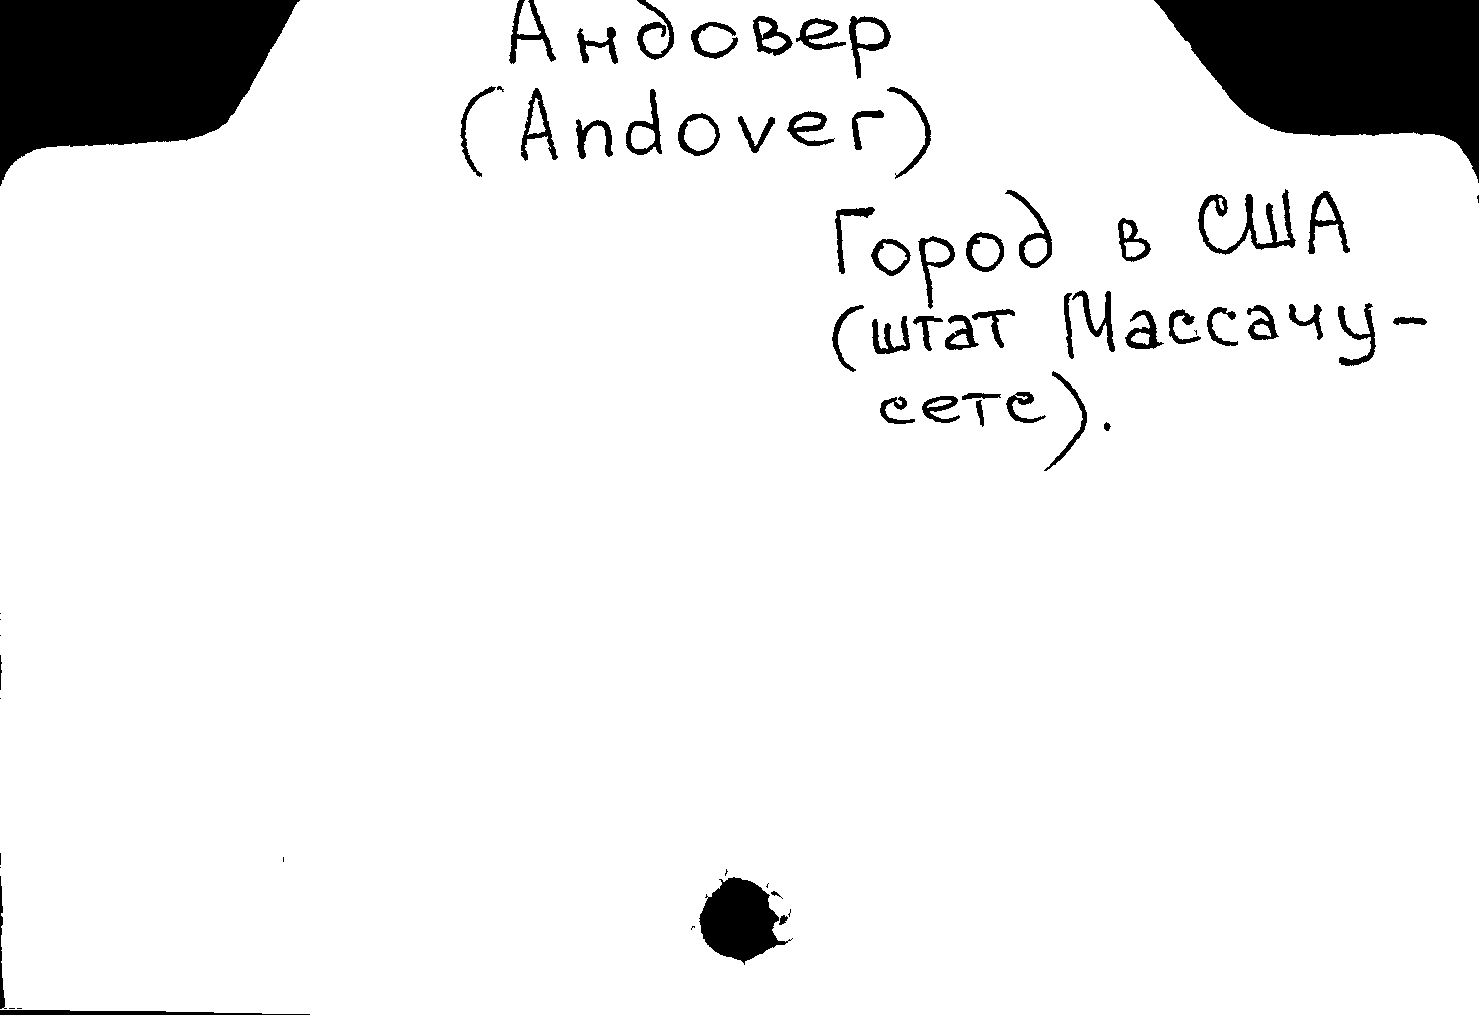 Андовер
(Andover)
Город в США
(штат Массачу-
сетс).